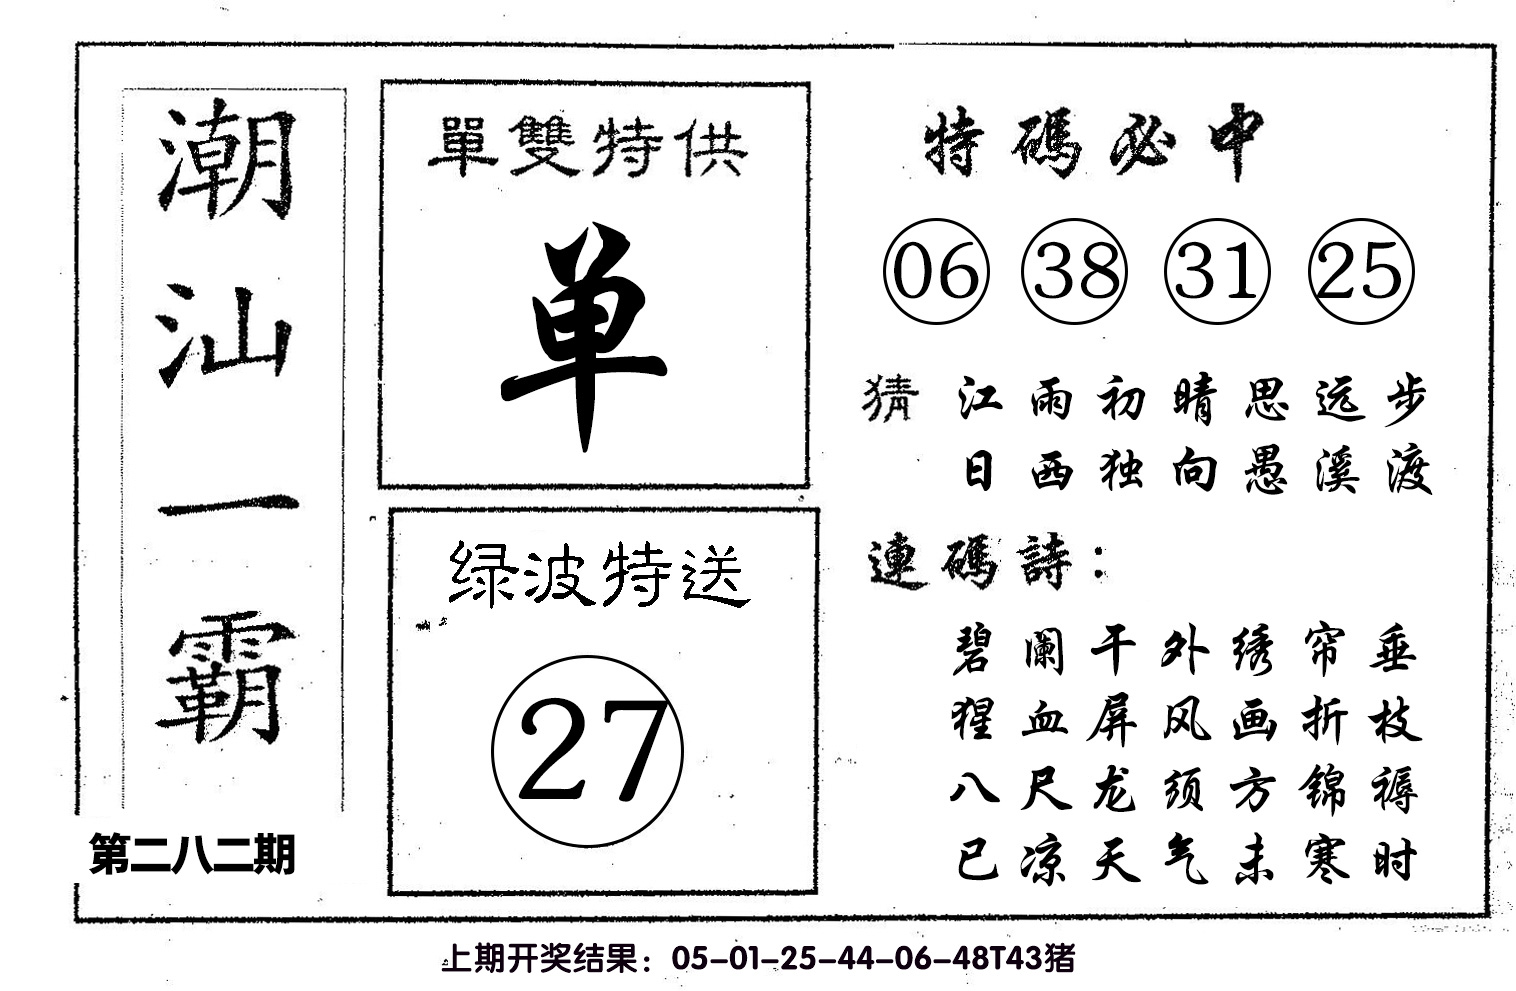 潮汕一霸
第二八二期
單雙特供
单
绿波特送
27
特碼必中
06 38 31 25
猜 江雨初晴思远步
日西独向愚溪渡
連碼詩：
碧阑干外绣帘垂
猩血屏风画折枝
八尺龙须方锦褥
已凉天气未寒时
上期开奖结果：05-01-25-44-06-48T43猪